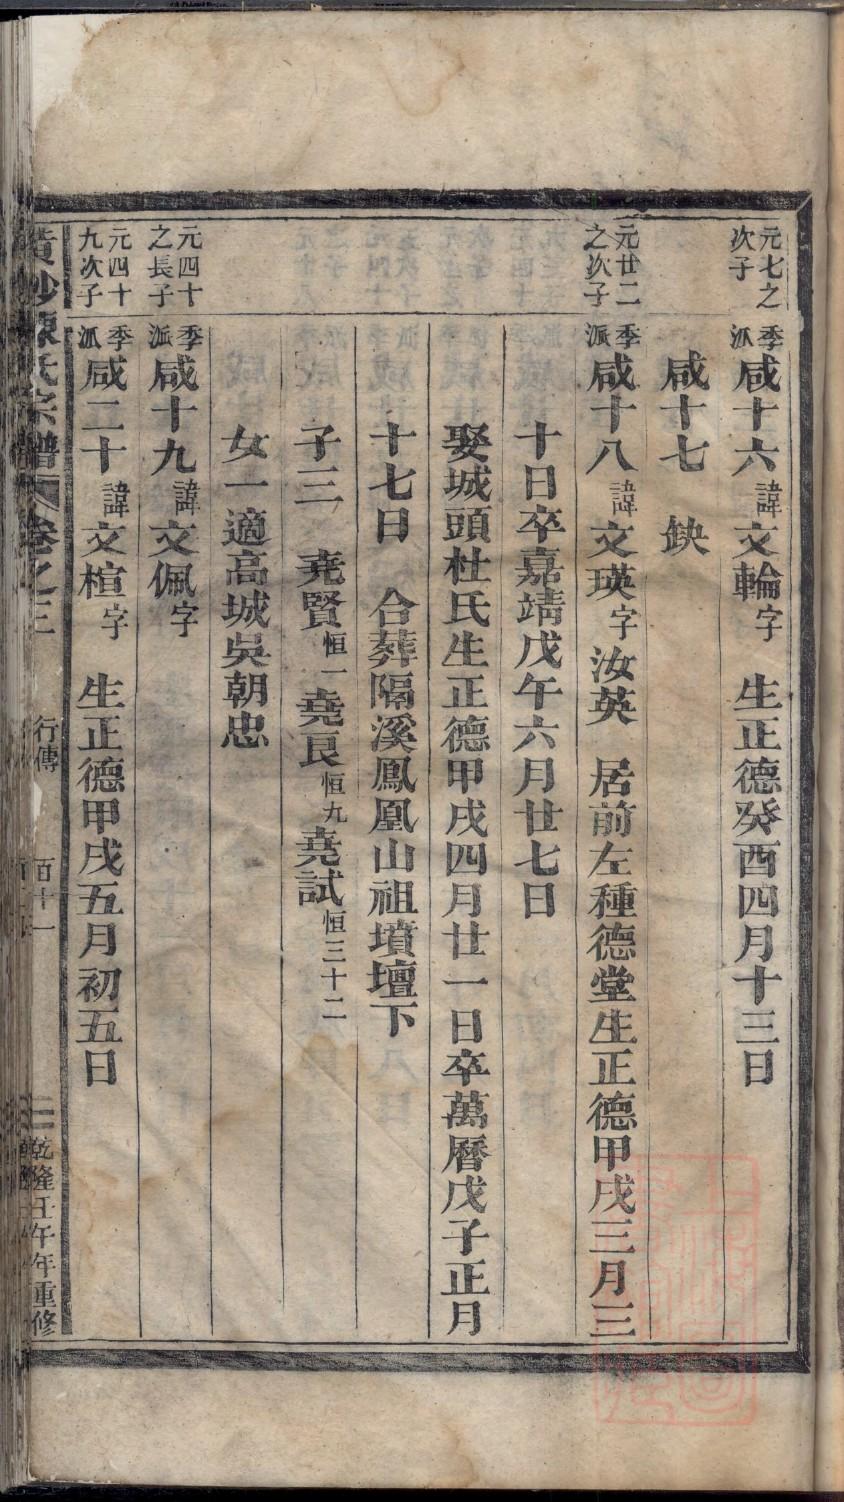 元七之次子
季派咸十六諱文輪字　生正德癸酉四月十三日
咸十七　缺
元廿二之次子
季派咸十八諱文瑛字汝英　居前左種德堂生正德甲戌三月三
十日卒嘉靖戊午六月廿七日
娶城頭杜氏生正德甲戌四月廿一日卒萬曆戊子正月
十七日　合葬隔溪鳳凰山祖墳壇下
子三　堯賢恒一堯良恒九堯試恒三十二
女一適高城吳朝忠
元四十之長子
季派咸十九諱文佩字
元四十九次子
季派咸二十諱文楦字　生正德甲戌五月初五日
陳氏宗譜　卷之三　行傳　百十一　乾隆壬午年重修